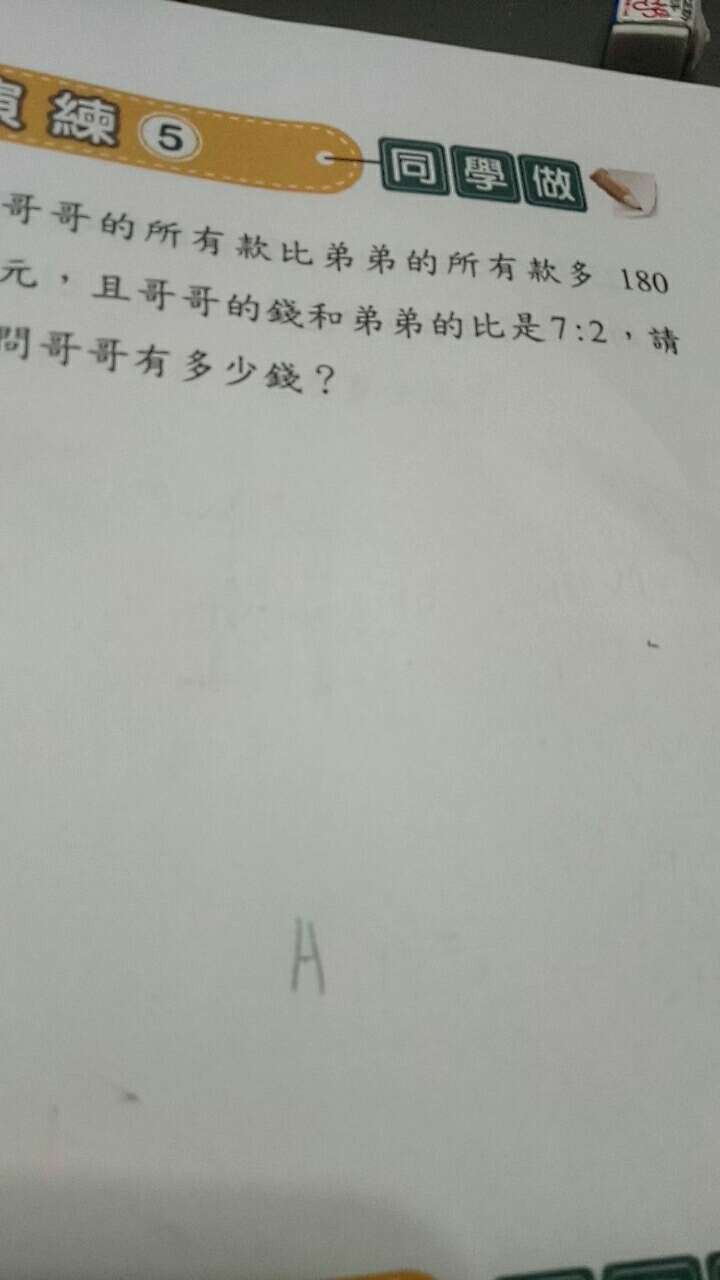 演練 5 同學做
哥哥的所有款比弟弟的所有款多 180
元，且哥哥的錢和弟弟的比是7:2，請
問哥哥有多少錢？
H